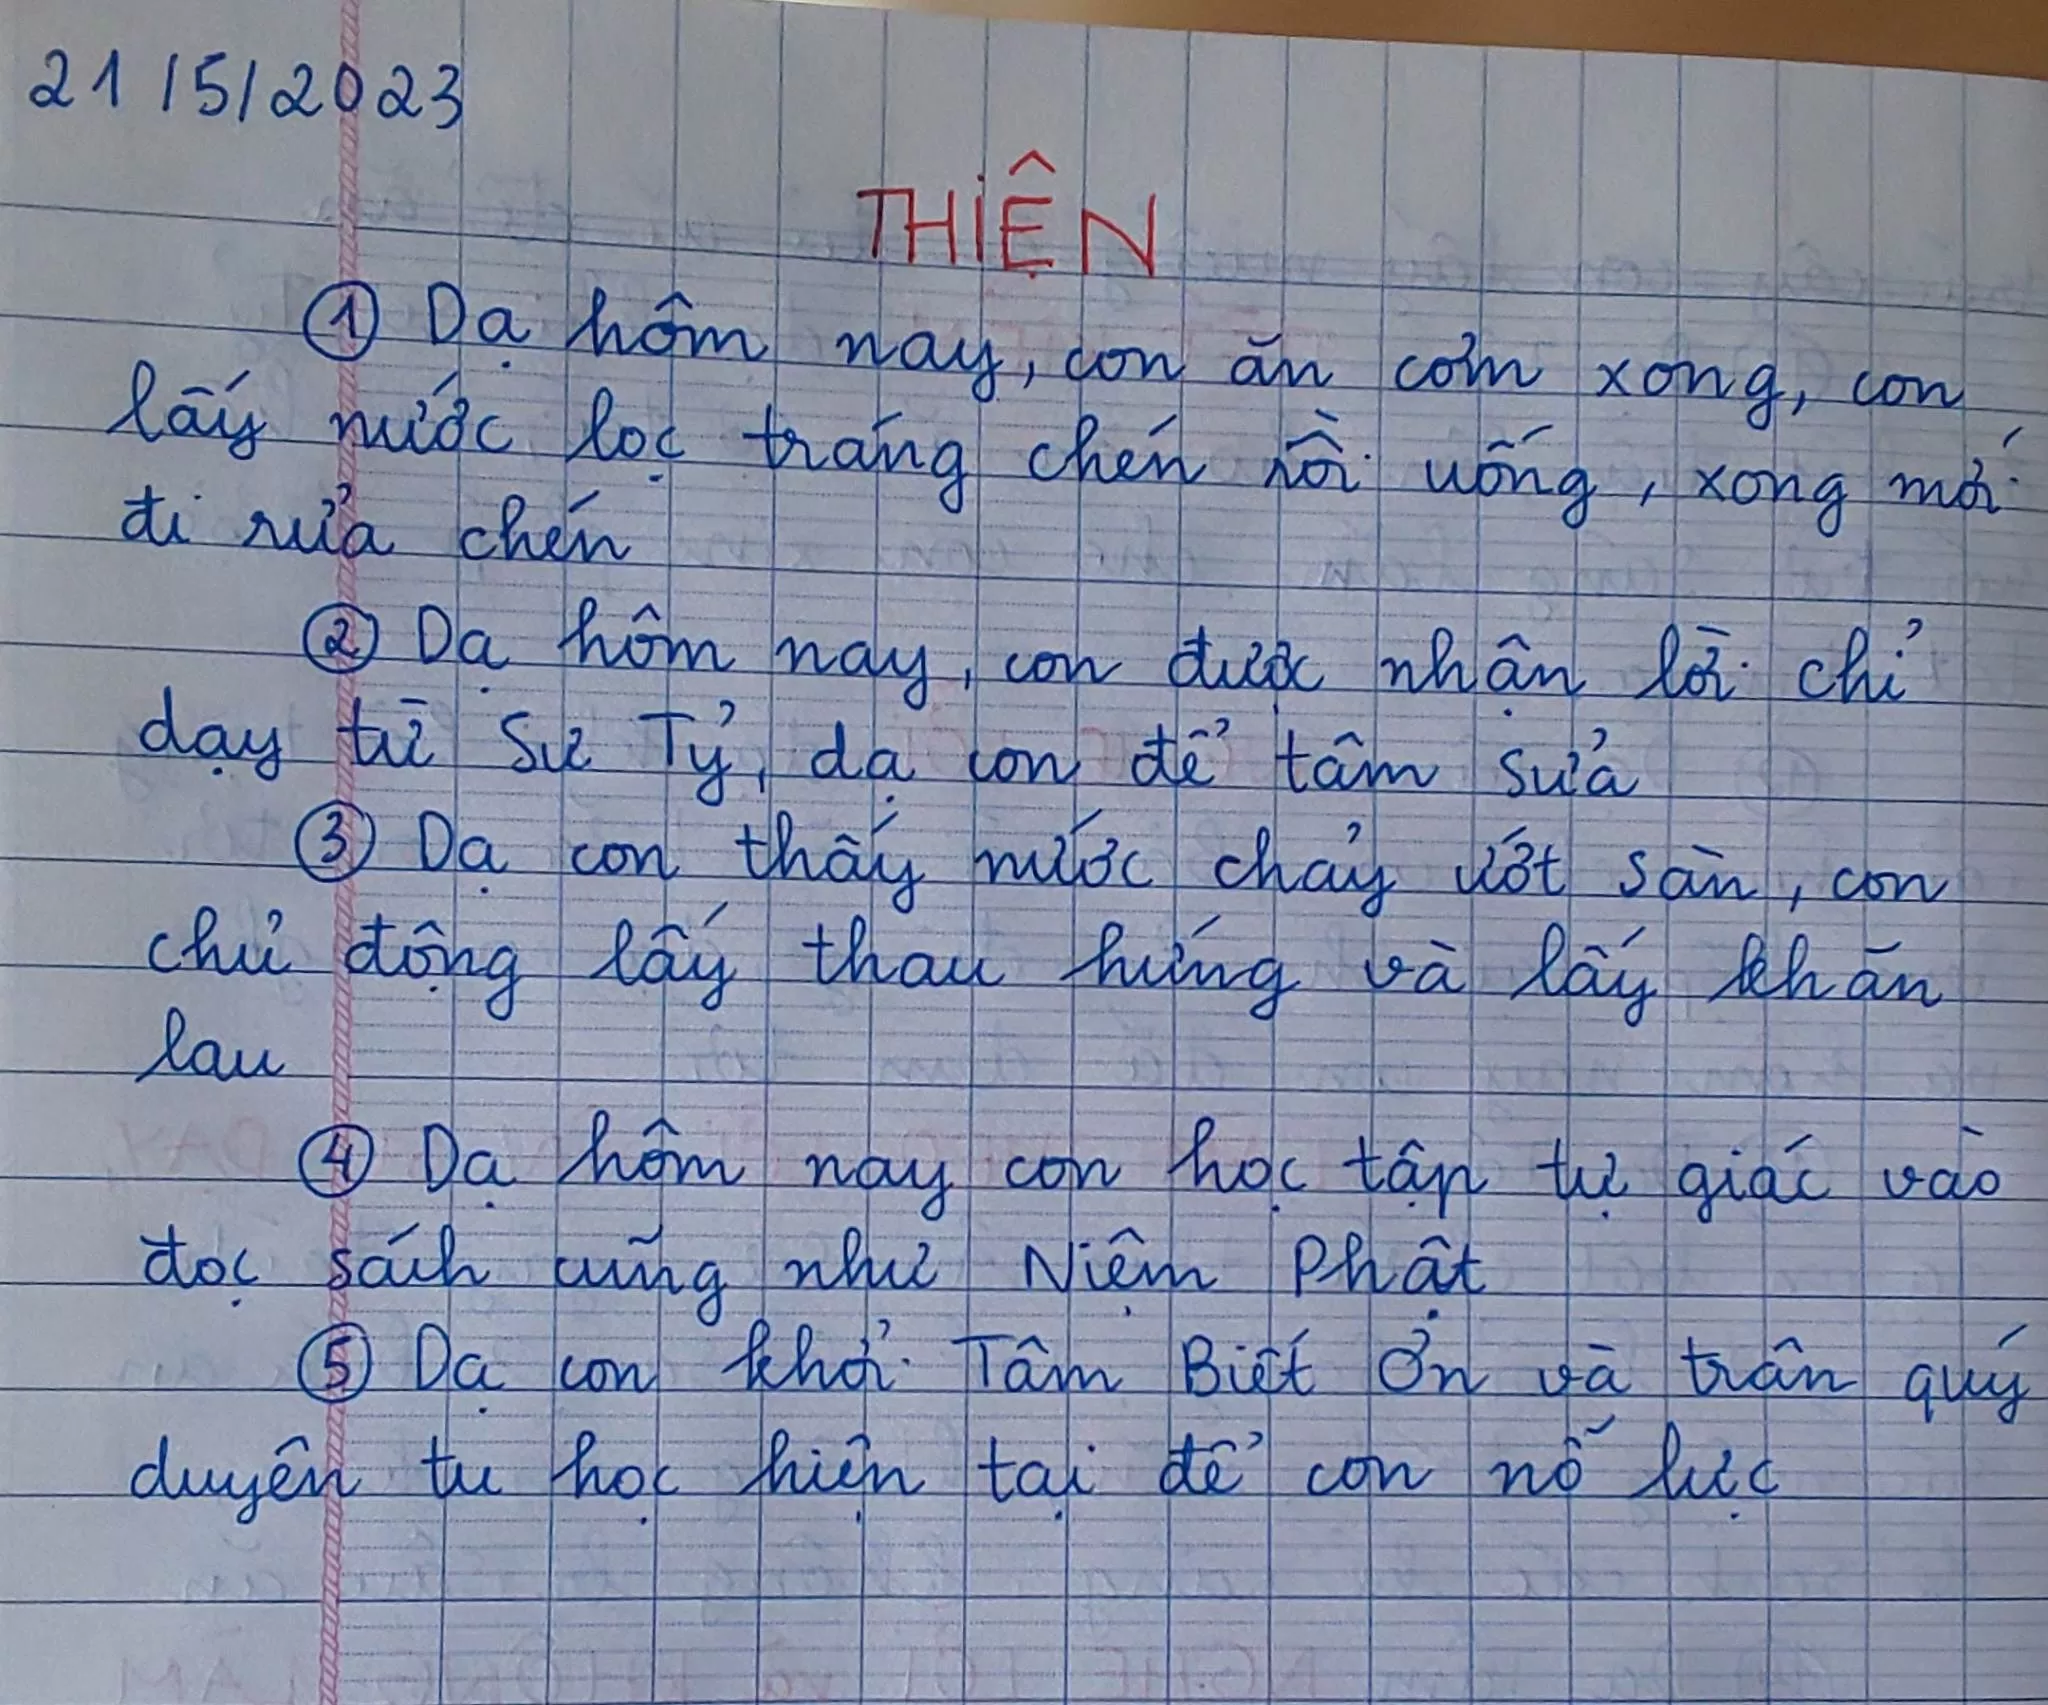 21/5/2023
THIỆN
① Dạ hôm nay, con ăn cơm xong, con
lấy nước lọc tráng chén rồi uống, xong mới
đi rửa chén
② Dạ hôm nay, con được nhận lời chỉ
dạy từ Sư Tỷ, dạ con để tâm sửa
③ Dạ con thấy nước chảy ướt sàn, con
chủ động lấy thau hứng và lấy khăn
lau
④ Dạ hôm nay con học tập tự giác vào
đọc sách cũng như Niệm Phật
⑤ Dạ con khởi Tâm Biết Ơn và trân quý
duyên tu học hiện tại để con nỗ lực